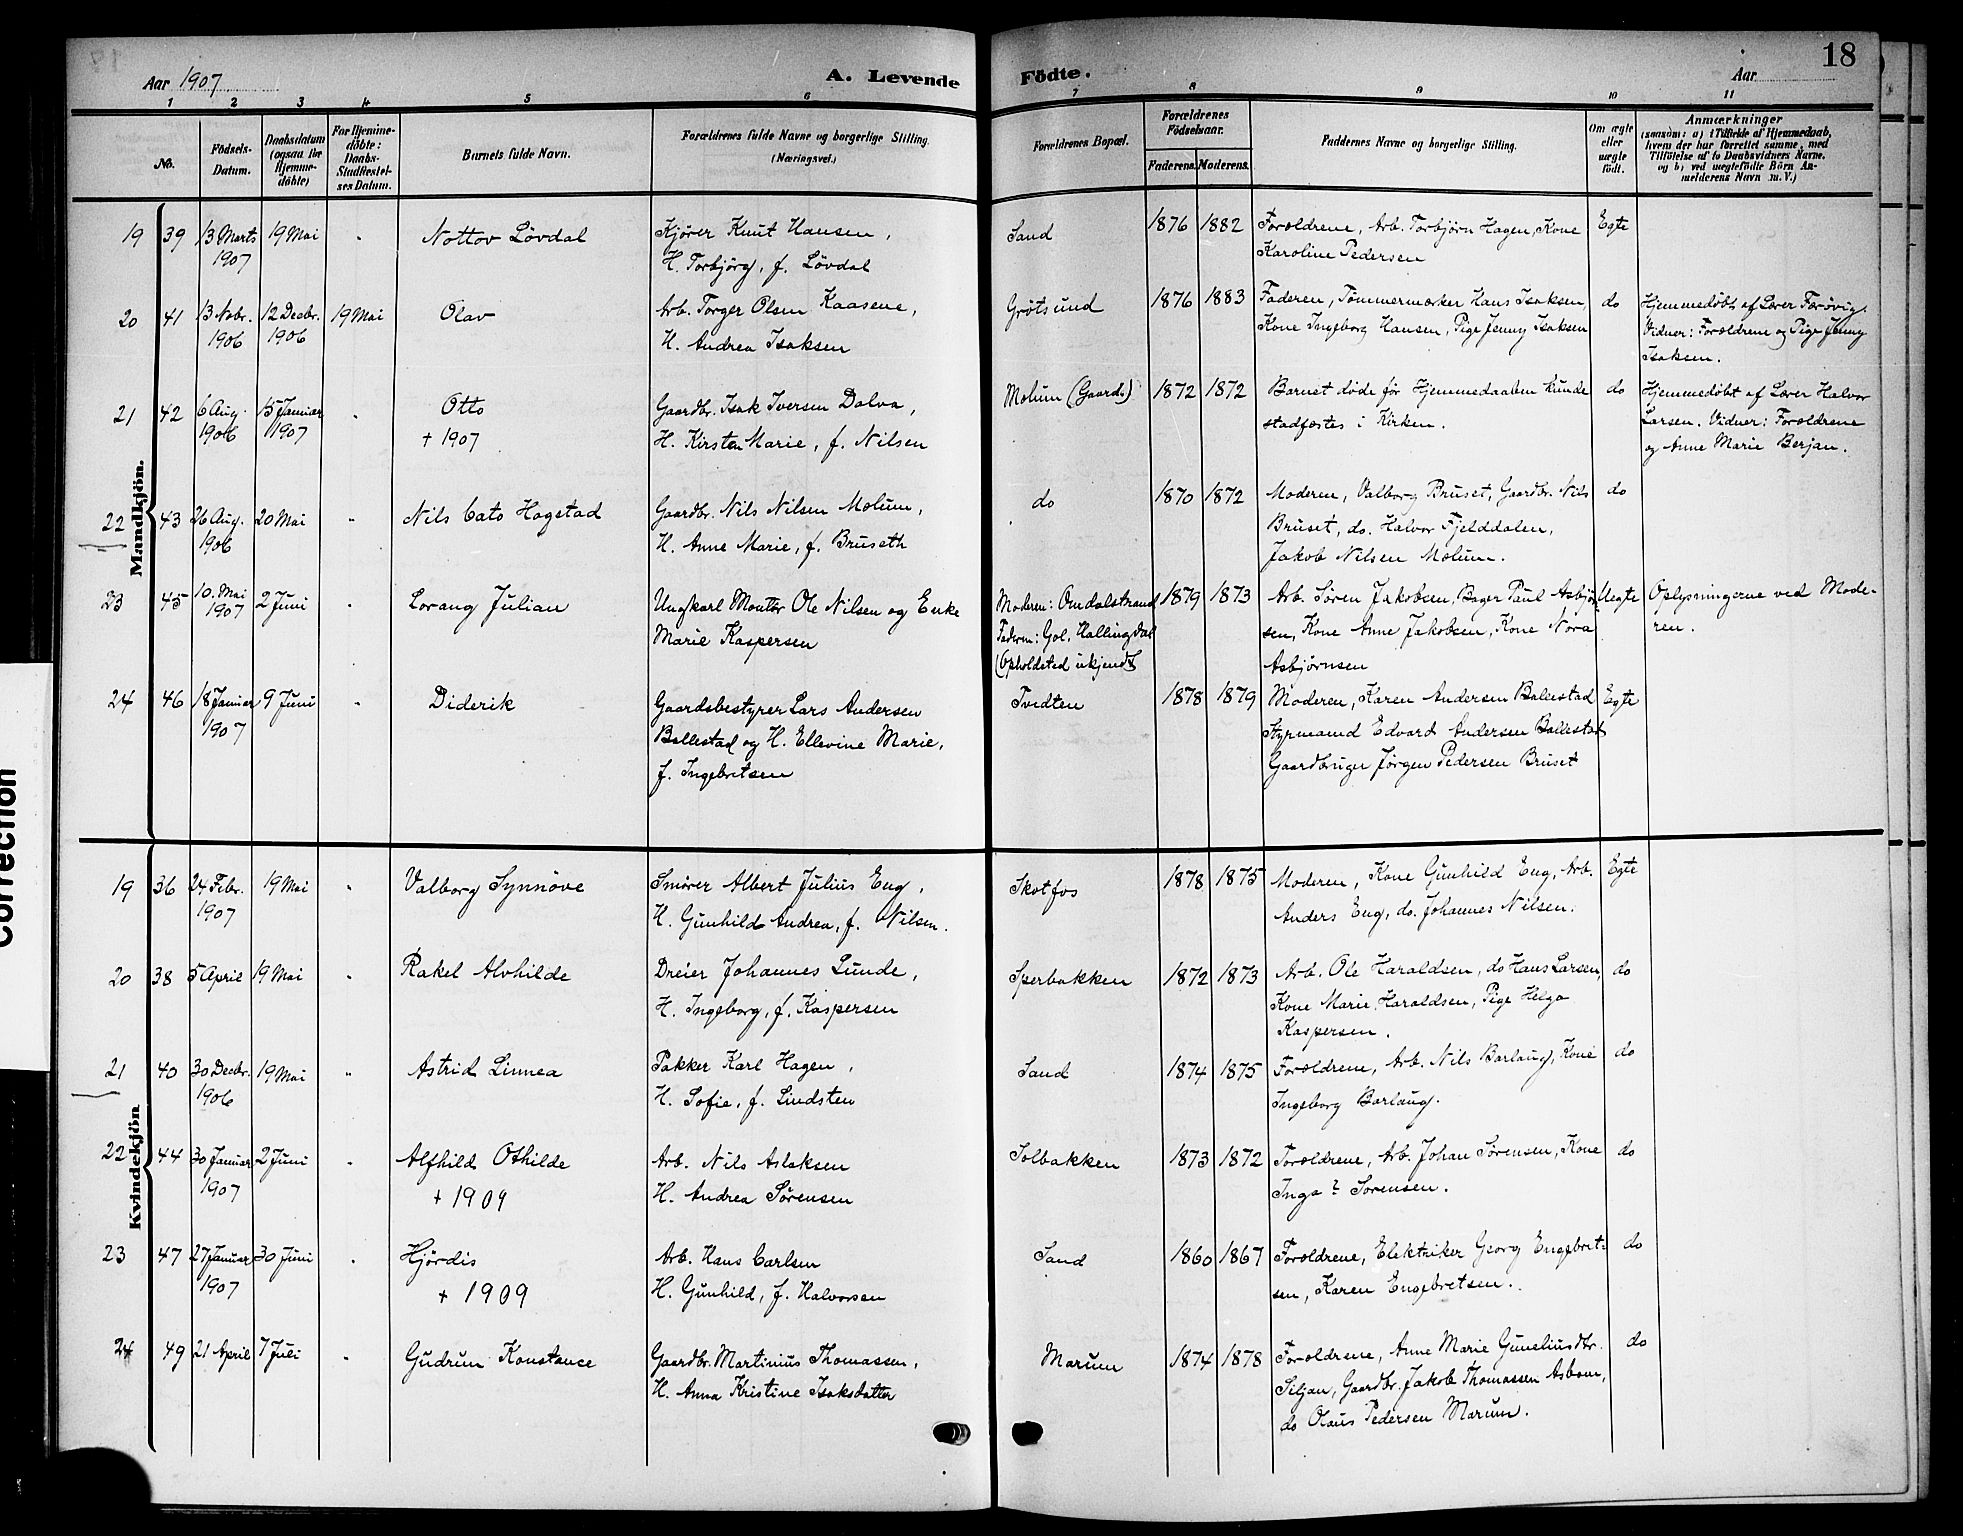 Aar 1907
A. Levende Födte.
Aar
18
1 2 3 4 5 6 7 8 9 10 11
No.
Födsels-
Datum.
Daabsdatum
(ogsaa for
Hjemme-
döbte)
For Hjemme-
döbte:
Daabs-
Stadfæstel-
ses Datum.
Barnets fulde Navn.
Forældrenes fulde Navne og borgerlige Stilling.
(Næringsvei.)
Forældrenes Bopæl.
Forældrenes
Födselsaar.
Faderens. Moderens.
Faddernes Navne og borgerlige Stilling.
Om ægte
eller
uægte
født.
Anmærkninger
(saasom: a) i Tilfælde af Hjemmedaab,
hvem der har forrettet samme, med
Tilföielse af to Daabsvidners Navne,
og b) ved uægtefödte Börn An-
melderens Navn m. V.)
Mandkjön.
19 39 13 Marts 19 Mai " Nottov Lövdal Kjører Knut Hansen, Sand 1876 1882 Forældrene, Arb. Torbjørn Hagen, Kone Egte
1907 H. Torbjörg, f. Lövdal Karoline Pedersen
20 41 13 Nobr. 12 Decbr. 19 Mai Olav Arb. Torger Olsen Kaasene, Grøtsund 1876 1883 Faderen, Tømmermærker Hans Isaksen, do Hjemmedøbt af Lærer Færøvig.
1906 1906 H. Andrea Isaksen Kone Ingeborg Hansen, Pige Jenny Isaksen Vidner: Forældrene og Pige Jenny
Isaksen.
21 42 6 Aug. 15 Januar " Otto Gaardbr. Isak Iversen Dalva, Mælum (Gaard.) 1872 1872 Barnet døde før Hjemmedaaben kunde do Hjemmedøbt af Lærer Halvor
1906 1907 + 1907 H. Kirsten Marie, f. Nilsen stadfæstes i Kirken. Larsen. Vidner: Forældrene
og Anne Marie Berjan.
22 43 26 Aug. 20 Mai " Nils Cato Hagstad Gaardbr. Nils Nilsen Mælum, do 1870 1872 Moderen, Valborg Bruset, Gaardbr. Nils do
1906 H. Anne Marie, f. Bruseth Bruset, do. Halvor Fjelddalen,
Jakob Nilsen Mælum.
23 45 10. Mai 2 Juni " Lorang Julian Ungkarl Montör Ole Nilsen og Enke Moderen: Omdalstrand 1879 1873 Arb. Søren Jakobsen, Bager Paul Asbjørn- Uegte Oplysningerne ved Mode-
1907 Marie Kaspersen Faderen: Gol, Hallingdal sen, Kone Anne Jakobsen, Kone Nora ren.
(Opholdsted ukjendt) Asbjørnsen
24 46 18 Januar 9 Juni " Diderik Gaardsbestyrer Lars Andersen Tvedten 1878 1879 Moderen, Karen Andersen Ballestad Egte
1907 Ballestad og H. Ellevine Marie, Styrmand Edvard Andersen Ballestad
f. Ingebretsen Gaardbruger Jørgen Pedersen Bruset
Kvindekjön
19 36 24 Febr. 19 Mai " Valborg Synnöve Smører Albert Julius Eng, Skotfos 1878 1875 Moderen, Kone Gunhild Eng, Arb. Egte
1907 H. Gunhild Andrea, f. Nilsen. Anders Eng, do. Johannes Nilsen.
20 38 5 April 19 Mai " Rakel Alvhilde Dreier Johannes Lunde, Sperbakken 1872 1873 Arb. Ole Haraldsen, do Hans Larsen, do
H. Ingeborg, f. Kaspersen Kone Marie Haraldsen, Pige Helga
Kaspersen.
21 40 30 Decbr. 19 Mai " Astrid Linnea Pakker Karl Hagen, Sand 1874 1875 Forældrene, Arb. Nils Barlaug, Kone do
1906 H. Sofie, f. Lindsten Ingeborg Barlaug.
22 44 30 Januar 2 Juni " Alfhild Othilde Arb. Nils Aslaksen Solbakken 1873 1872 Forældrene, Arb. Johan Sørensen, Kone do
1907 + 1909 H. Andrea Sørensen Inga ? Sørensen.
23 47 27 Januar 30 Juni " Hjördis Arb. Hans Carlsen Sand 1860 1867 Forældrene, Elektriker Georg Engebret- do
1907 + 1909 H. Gunhild, f. Halvorsen sen, Karen Engebretsen.
24 49 21 April 7 Juli " Gudrun Konstance Gaardbr. Martinius Thomassen, Marum 1874 1878 Forældrene, Anne Marie Guneliusdtr. do
H. Anna Kristine Isaksdatter Siljan, Gaardbr. Jakob Thomassen Asbom,
do Olaus Pedersen Marum.
Correction